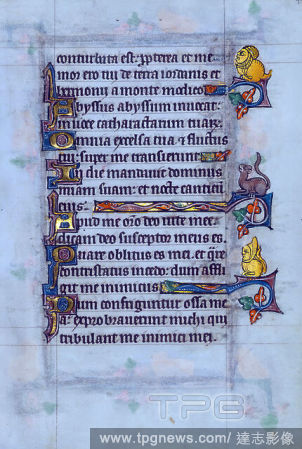 conturbata est: ꝓpterea et me
mor ero tui de terra iordanis et
hermonij a monte modico.
Abyssus abyssum inuocat:
in uoce cataractarum tuarum.
Omnia excelsa tua & fluctus
tui: super me transierunt.
In die mandauit dominus
miam suam: et nocte canticū
eius.
Apud me oro deo uite mee
dicam deo susceptor meus es
Quare oblitus es mei. et qre
contristatus incedo: dum affli
git me inimicus
Dum confringuntur ossa me
a: exprobrauerunt michi qui
tribulant me inimici mei.
TPG
www.tpgnews.com/達志影像